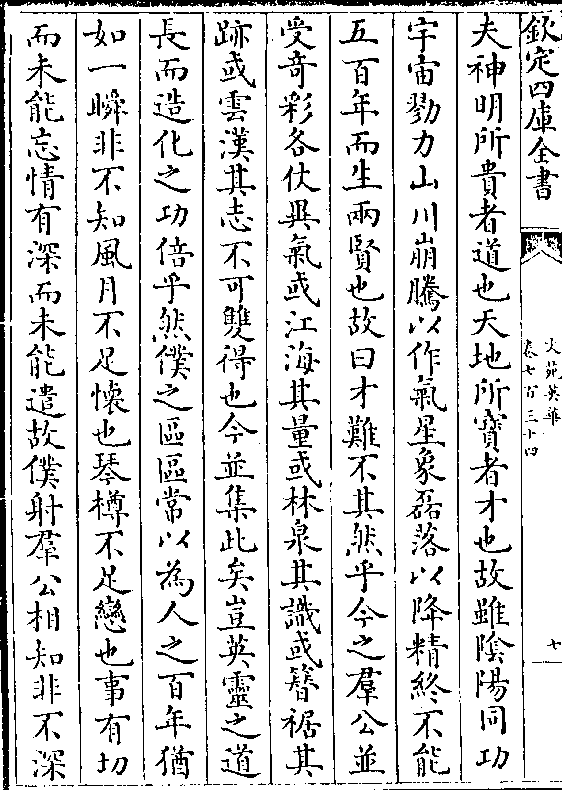 欽定四庫全書
文苑英華
卷七百三十四
七
夫神明所貴者道也天地所寶者才也故雖陰陽同功
宇宙勠力山川崩騰以作氣星象磊落以降精終不能
五百年而生兩賢也故曰才難不其然乎今之羣公並
受奇彩各仗異氣或江海其量或林泉其識或簪裾其
跡或雲漢其志不可雙得也今並集此矣豈英靈之道
長而造化之功倍乎然僕之區區常以為人之百年猶
如一瞬非不知風月不足懐也琴樽不足戀也事有切
而未能忘情有深而未能遣故僕射羣公相知非不深